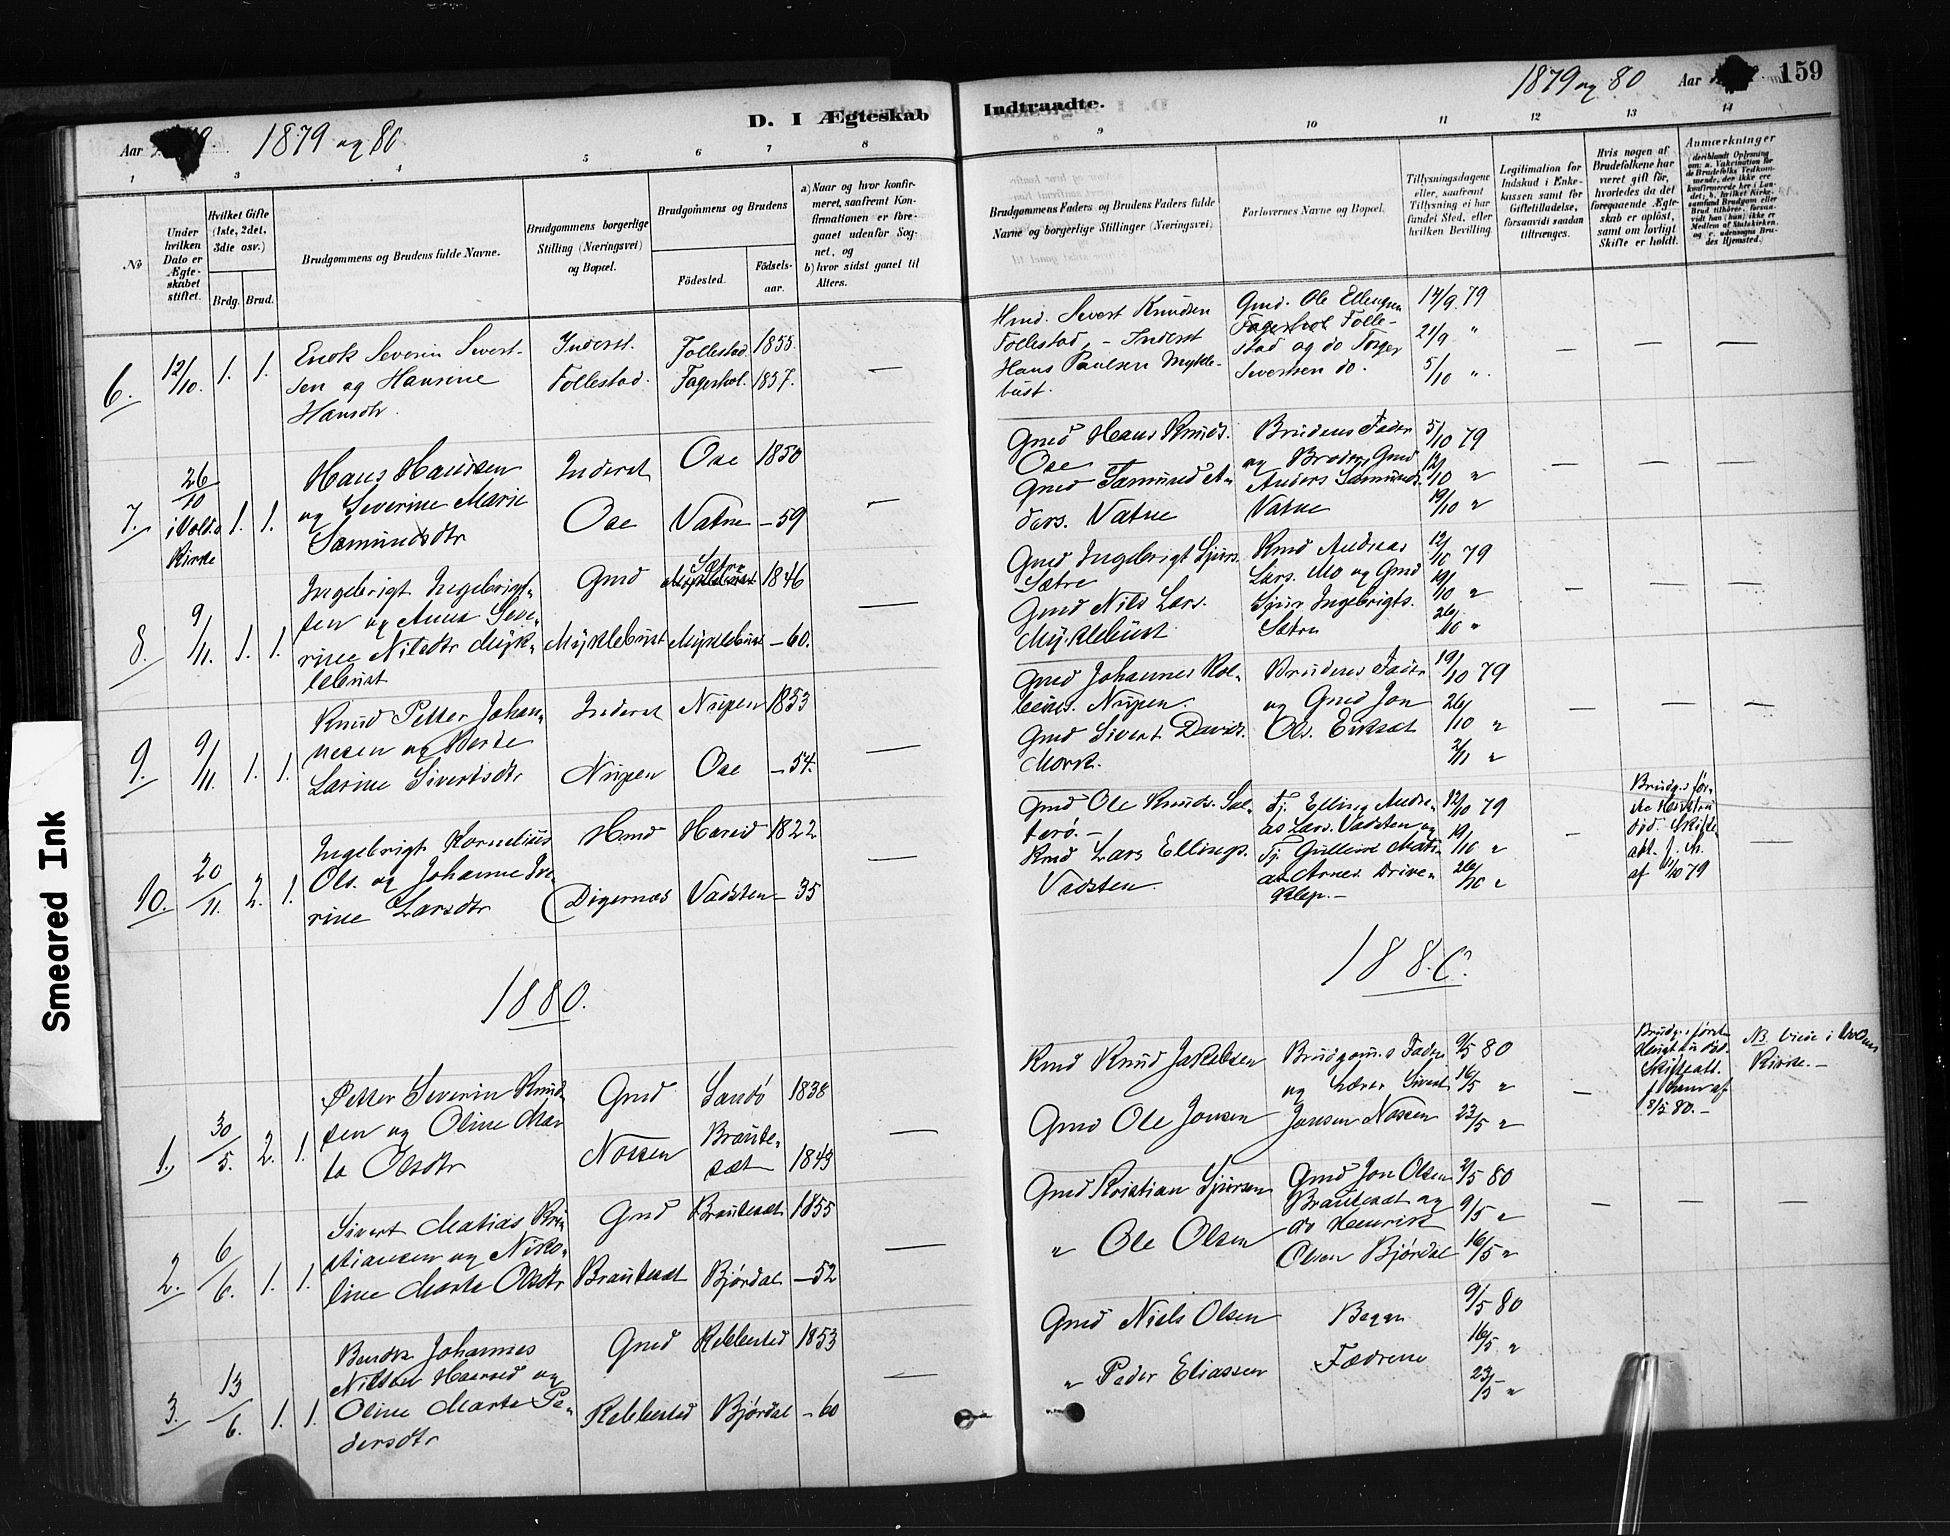 Aar
1879 og 80
D. I Ægteskab
Indtraadte.
1879 og 80
Aar
159
1
3
4
5
6
7
8
9
10
11
12
13
14
No
Under hvilken Dato er Ægteskabet stiftet.
Hvilket Gifte (1ste, 2det, 3die osv.)
Brdg. Brud.
Brudgommens og Brudens fulde Navne.
Brudgommens borgerlige Stilling (Næringsvei) og Bopæl.
Brudgommens og Brudens
Fødested.
Fødselsaar.
a) Naar og hvor konfirmeret, saafremt Konfirmationen er foregaaet udenfor Sognet, og
b) hvor sidst gaaet til Alters.
Brudgommens Faders og Brudens Faders fulde Navne og borgerlige Stillinger (Næringsvei)
Forlovernes Navne og Bopæl.
Tillysningsdagene eller, saafremt Tillysning ei har fundet Sted, efter hvilken Bevilling.
Legitimation for Indskud i Enkekassen samt for Giftetilladelse, forsaavidt saadan tiltrænges.
Hvis nogen af Brudefolkene har været gift før, hvorledes da det foregaaende Ægteskab er opløst, samt om lovligt Skifte er holdt.
Anmærkninger
6.
12/10.
1.
1.
Enok Severin Sivert-
sen og Hansine
Hansdtr.
Inderst.
Follestad.
Follestad.
Fagerhol.
1855.
1837.
—
Hmd. Sivert Knudsen
Follestad, - Inderst
Hans Paulsen Mykle-
bust.
Gmd. Ole Ellingsen
Fagerhol Folle-
stad og do Torger
Sivertsen do.
14/9. 79
21/9 "
5/10 ".
7.
26/10
i Volda
Kirke
1.
1.
Hans Hansen
og Severine Marie
Samundsdtr
Inderst
Ose
Ose
Vatne
1850
-59
—
Gmd Hans Knuds.
Ose
Gmd Samund An-
ders. Vatne
Brudens Fader
og Broder, Gmd
Anders Samunds.
Vatne
5/10 79
12/10 "
19/10 "
8.
9/11.
1.
1.
Ingebrigt Ingebrigt-
sen og Anna Seve-
rine Nilsdtr Myk-
lebust
Gmd
Myklebust
Sætre
Myklebust
1846
-60.
—
Gmd Ingebrigt Sjurs.
Sætre
Gmd Nils Lars.
Myklebust
Kmd Andreas
Lars. Mo og Gmd
Sjur Ingebrigts.
Sætre
12/10 79
19/10 "
26/10 "
9.
9/11.
1.
1.
Knud Petter Johan-
nesen og Berte
Larine Sivertsdtr
Inderst
Nupen
Nupen
Ose
1853
-54.
—
Gmd Johannes Kol-
beins. Nupen.
Gmd Sivert Davids.
Mork.
Brudens Fader
og Gmd Jon
Ols. Eiksæt
19/10 79
26/10 "
2/11 "
10.
20/11.
2.
1.
Ingebrigt Kornelius
Ols. og Johanne Se-
rine Larsdtr
Hmd
Digernæs
Hareid
Vadsten
1822
-35
—
Gmd Ole Knuds.
Kmd Lars Ellings.
Vadsten.
Tj. Elling Andre-
as Lars. Vadsten og
Tj.
Drive-
klep.-
12/10 79
19/10 "
26/10 "
af 11/10 79
1880.
1880.
1.
30/5.
2.
1.
Petter Severin Knud-
sen og Oline Mar-
ta Olsdtr
Gmd
Nossen
Sandö
Braute-
sæt
1838
1843
—
Kmd Knud Jakobsen
Gmd Ole Jonsen
Brudgom.s Fader
og Lærer Sivert
Jonsen Nossen
9/5 80
16/5 "
23/5 "
Brudg.s første
Skifteatt.
8/5 80.-
NB. Viede i Voldens
Kirke.-
2.
6/6.
1.
1.
Sivert Matias Kri-
stiansen og Niko-
line Marta Olsdtr
Gmd
Brautesæt
Brautesæt
Bjørdal
1855
-52
—
Gmd Kristian Sjursen
" Ole Olsen
Gmd Jon Olsen
Brautesæt og
do Henrik
Olsen Bjørdal
2/5 80
9/5 "
16/5 "
3.
13/6.
1.
1.
Bendik Johannes
Nilsen Haavad og
Oline Marta Pe-
dersdtr
Gmd
Rebbestad
Rebbestad
Bjørdal
1853
-60
—
Gmd Niels Olsen
" Peder Eliassen
Begge
Fædrene
9/5 80
16/5 "
23/5 "
Smeared Ink